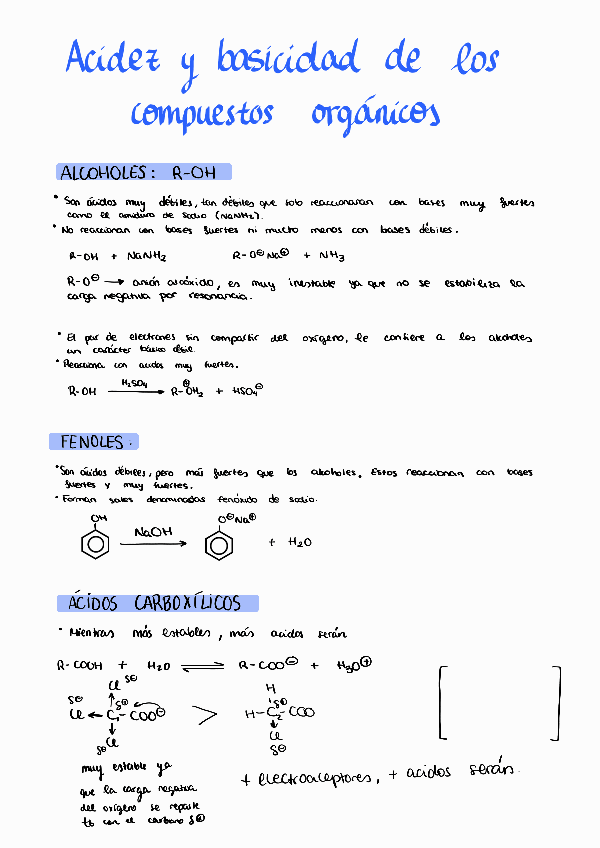 Acidez y basicidad de los
compuestos orgánicos
ALCOHOLES: R-OH
• Son ácidos muy débiles, tan débiles que solo reaccionaran con bases muy fuertes
como el amiduro de sodio (NaNH₂).
• No reaccionan con bases fuertes ni mucho menos con bases débiles.
R-OH + NaNH₂ R-O⊖Na⊕ + NH₃
R-O⊖ → anión alcóxido, es muy inestable ya que no se estabiliza la
carga negativa por resonancia.
• El par de electrones sin compartir del oxígeno, le confiere a los alcoholes
un carácter básico débil.
• Reacciona con acidos muy fuertes.
R-OH H₂SO₄ → R-⊕OH₂ + HSO₄⊖
FENOLES.
• Son ácidos débiles, pero más fuertes que los alcoholes. Estos reaccionan con bases
fuertes y muy fuertes.
• Forman sales denominadas fenóxido de sodio.
OH O⊖Na⊕
NaOH → + H₂O
ÁCIDOS CARBOXÍLICOS
• Mientras más estables, más acidos serán
R-COOH + H₂O ⇌ R-COO⊖ + H₃O⊕
Cl δ⊖ H
δ⊖ δ⊕ δ⊕
Cl ← C₁ - COO⊖ > H - C₂ - COO
δ⊖ Cl Cl
δ⊖
muy estable ya
que la carga negativa
del oxígeno se reparte
con el carbono δ⊕
+ electroaceptores, + acidos serán.